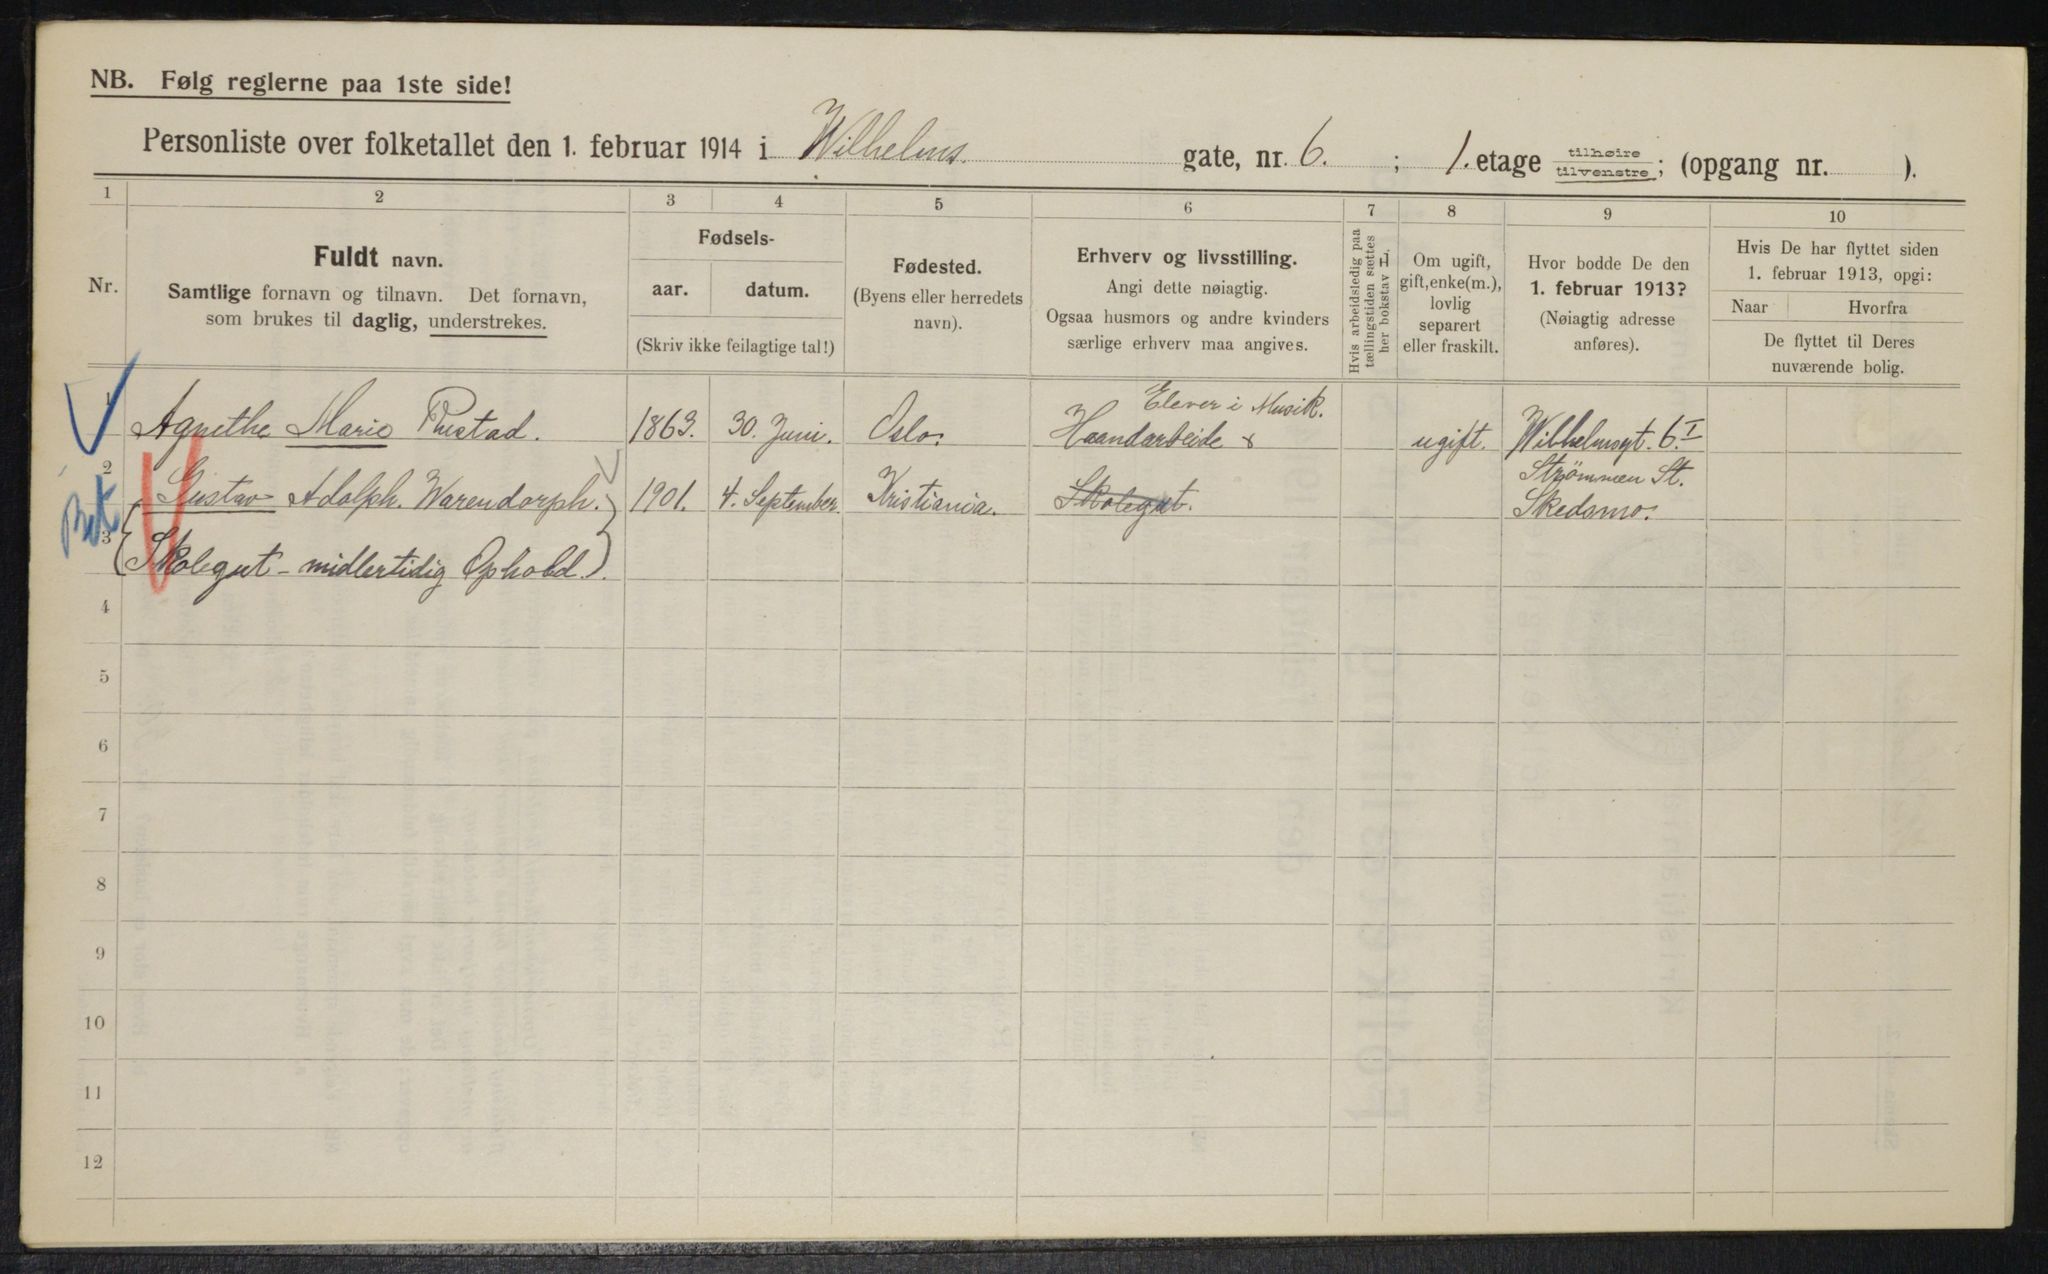 NB. Følg reglerne paa 1ste side!
Personliste over folketallet den 1. februar 1914 i Wilhelms gate, nr. 6. ; 1. etage tilhøire / tilvenstre; (opgang nr. ).
1 2 3 4 5 6 7 8 9 10
Nr.
Fuldt navn.
Samtlige fornavn og tilnavn. Det fornavn,
som brukes til daglig, understrekes.
Fødsels-
aar. datum.
(Skriv ikke feilagtige tal!)
Fødested.
(Byens eller herredets
navn).
Erhverv og livsstilling.
Angi dette nøiagtig.
Ogsaa husmors og andre kvinders
særlige erhverv maa angives.
Hvis arbeidsledig paa
tællingstiden sættes
her bokstav L
Om ugift,
gift, enke(m.),
lovlig
separert
eller fraskilt.
Hvor bodde De den
1. februar 1913?
(Nøiagtig adresse
anføres).
Hvis De har flyttet siden
1. februar 1913, opgi:
Naar Hvorfra
De flyttet til Deres
nuværende bolig.
Elever i Musik.
1 Agnethe Marie Rustad. 1863. 30. Juni. Oslo. Haandarbeide & ugift. Wilhelmsgt. 6.I
Strømmen St.
2 Gustav Adolph. Warendorph. 1901. 4. September. Kristiania. Skolegut. Skedsmo.
3 (Skolegut - midlertidig Ophold.).
4
5
6
7
8
9
10
11
12